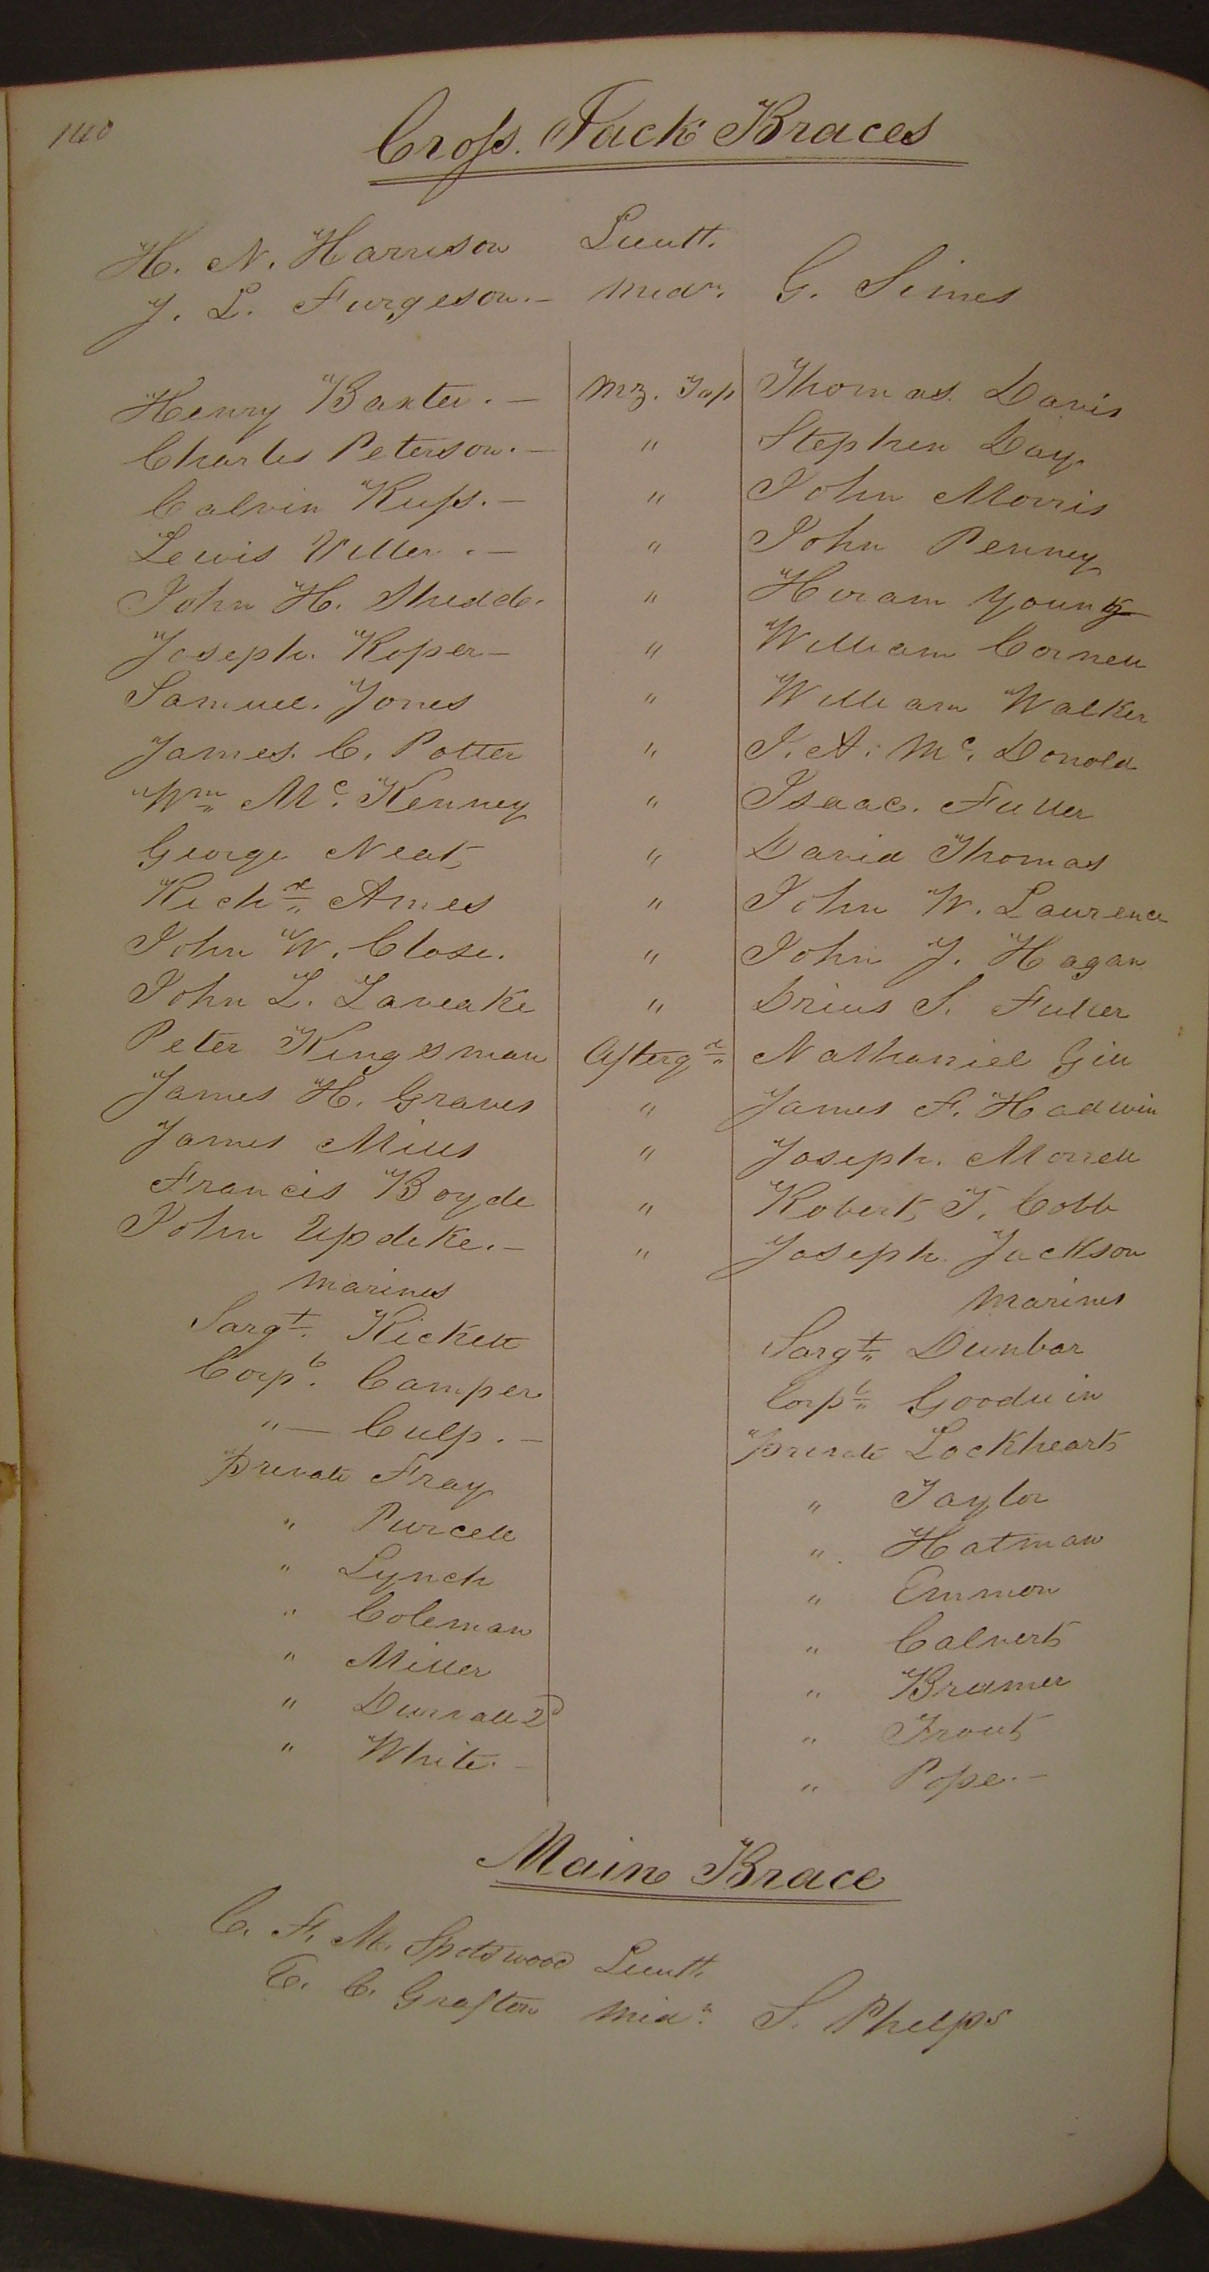 140
Cross. Jack Braces
H. N. Harrison Lieutt.
J. L. Furgeson. — Midn. G. Simes
Henry Baxter. — Mz. Top Thomas Davis
Charles Peterson. — " Stephen Day
Calvin Russ. — " John Morris
Lewis Viller. — " John Penney
John H. Shedd. " Hiram Young
Joseph. Roper — " William Cornell
Samuel. Jones " William Walker
James. C. Potter " J. A. Mc. Donold
Wm Mc. Kenney " Isaac. Fuller
George Neat " David Thomas
Richd Ames " John W. Laurence
John W. Close. " John J. Hagan
John L. Laveake " Drius S. Fuller
Peter Kingsman Aftergd Nathaniel Gill
James H. Graves " James F. Hadwin
James Mills " Joseph. Morrell
Francis Boyde " Robert T. Cobb
John Updike. — " Joseph Jackson
Marines Marines
Sargt. Rickett Sargt Dunbar
Corpl. Camper Corpl Goodwin
" — Culp. — private Lockheart
private Fray " Taylor
" Purcell " Hatman
" Lynch " Emmon
" Coleman " Calvert
" Miller " Bramer
" Durvall 2d " Trout
" White. — " Pope. —
Main Brace
C. F. M. Spotswood Lieutt.
E. C. Grafton Midn. S. Phelps